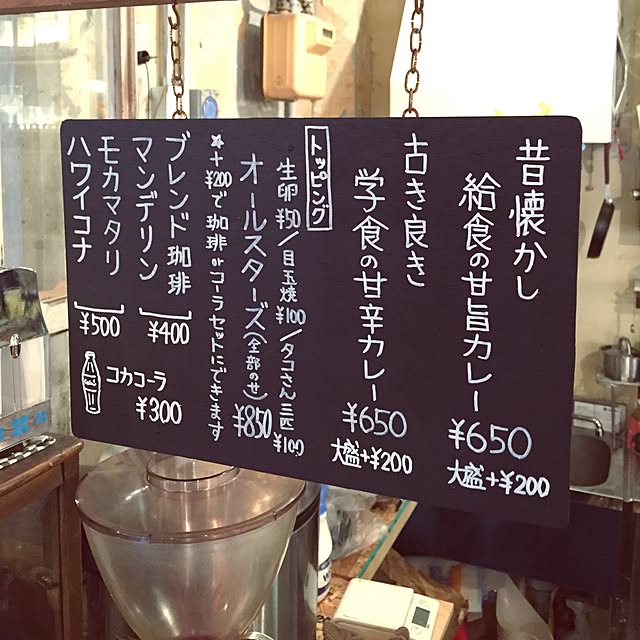 昔懐かし
給食の甘旨カレー
¥650
大盛+¥200
古き良き
学食の甘辛カレー
¥650
大盛+¥200
トッピング
生卵¥50/目玉焼¥100/タコさん三匹¥100
オールスターズ(全部のせ)¥850
★+¥200で珈琲orコーラセットにできます
ブレンド珈琲
マンデリン
¥400
モカマタリ
ハワイコナ
¥500
コカコーラ
¥300